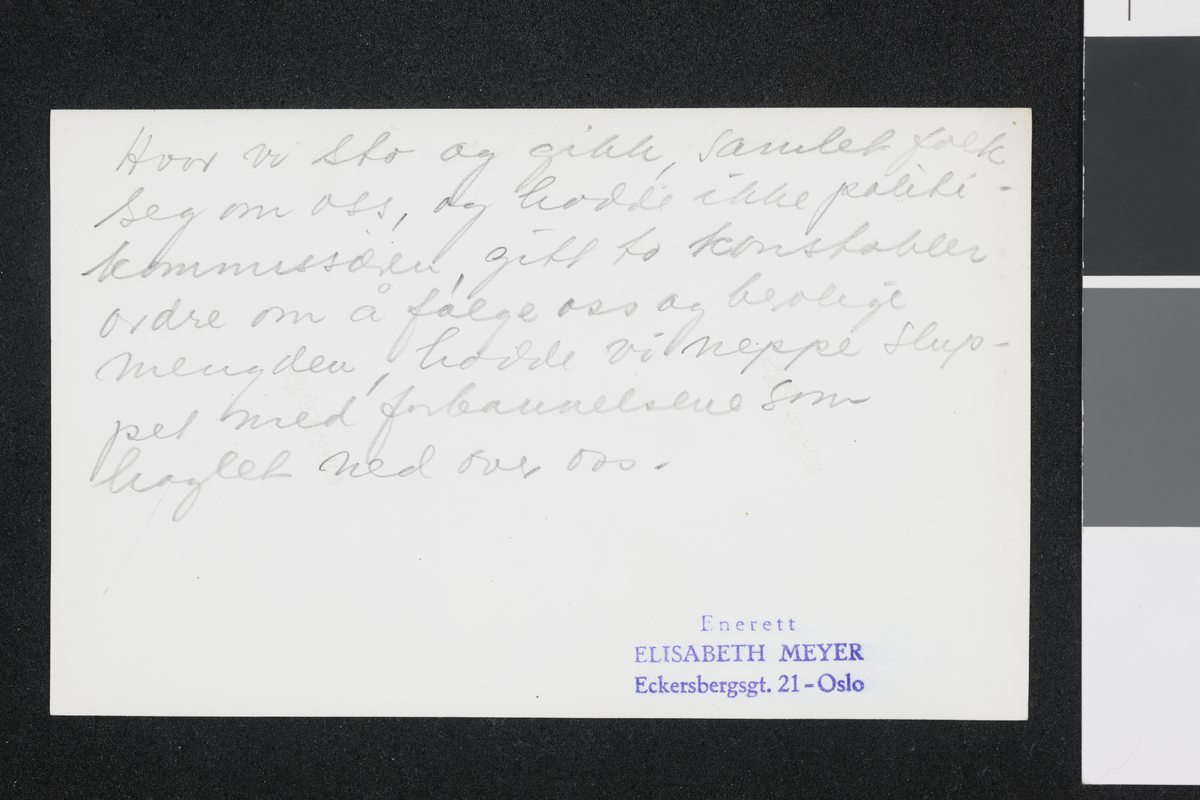 Hvor vi sto og gikk, samlet folk
seg om oss, og hadde ikke politi-
kommissæren gitt to konstabler
ordre om å følge oss og berolige
mengden, hadde vi neppe slup-
pet med forbannelsene som
haglet ned over oss.
Enerett
ELISABETH MEYER
Eckersbergsgt. 21 - Oslo